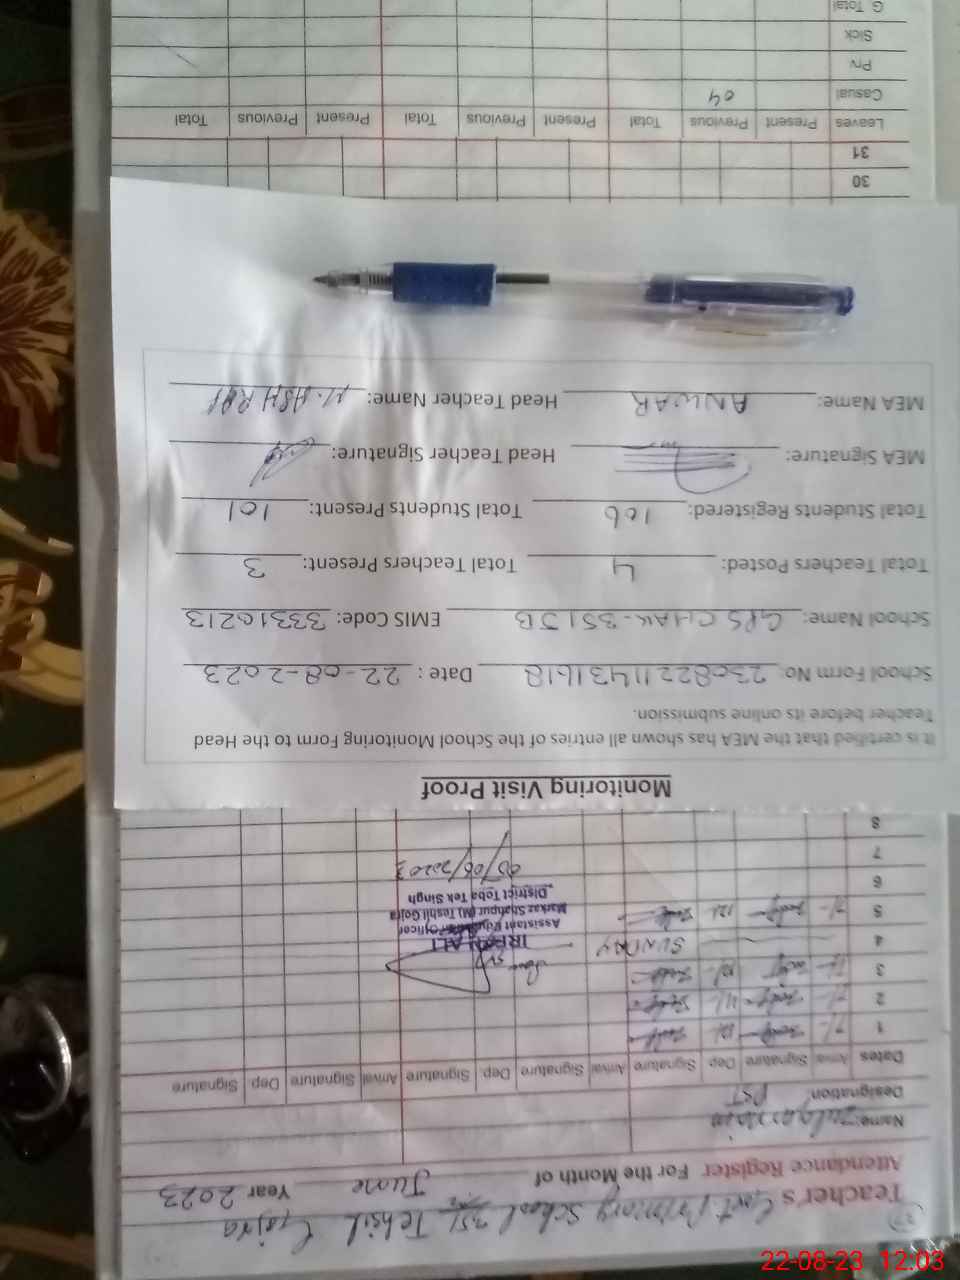 Govt Primary School 351 Tehsil Gojra
Teacher's
Attendance Register For the Month of June Year 2023
Name:
Designation PST
Dates Arrival Signature Dep Signature Arrival Signature Dep. Signature Arrival Signature Dep Signature
1
2
3
4 SUNDAY
5
6
7
8
IRFAN ALI
Assistant Education Officer
Markaz Shahpur (M) Teshil Gojra
District Toba Tek Singh
05/06/2023
Monitoring Visit Proof
It is certified that the MEA has shown all entries of the School Monitoring Form to the Head
Teacher before its online submission.
School Form No: 23082211431618 Date : 22-08-2023
School Name: GPS CHAK-351 JB EMIS Code: 33310213
Total Teachers Posted: 4 Total Teachers Present: 3
Total Students Registered: 106 Total Students Present: 101
MEA Signature: Head Teacher Signature:
MEA Name: ANWAR Head Teacher Name: M. ASHRAF
30
31
Leaves Present Previous Total Present Previous Total Present Previous Total
Casual 04
Prv
Sick
G. Total
22-08-23 12:03